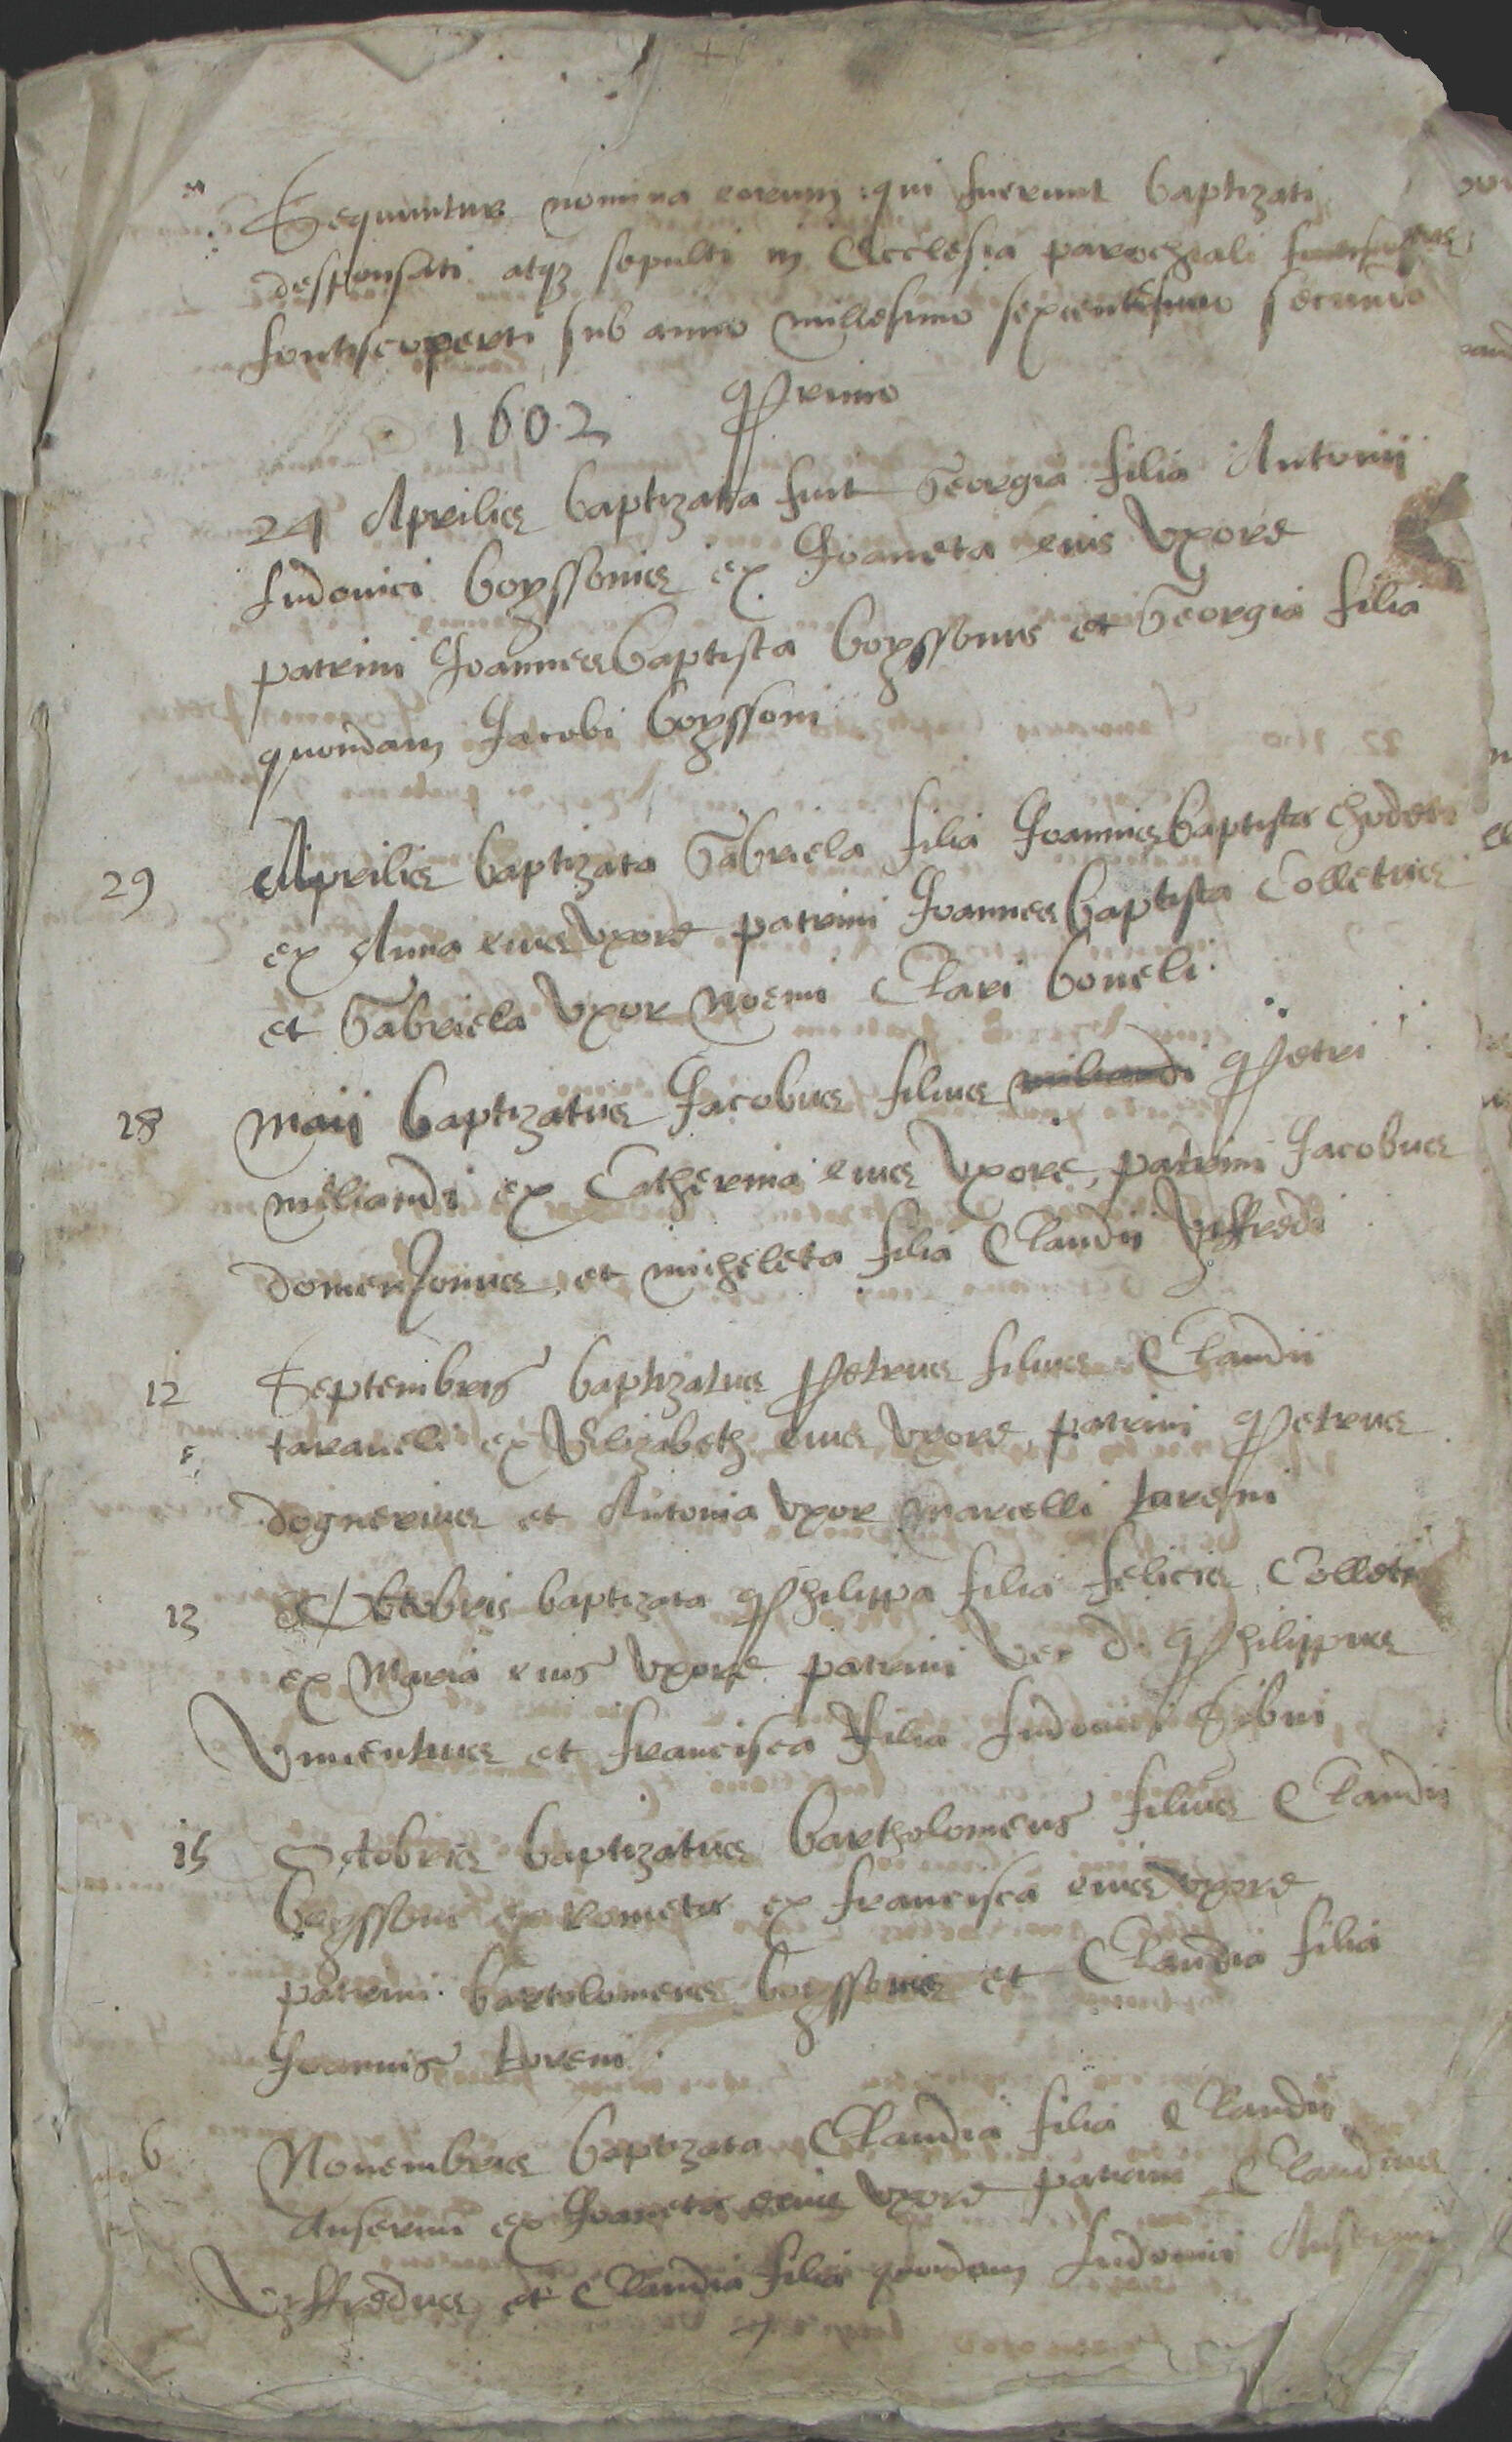 Sequuntur nomina eorum qui fuerunt baptizati
desponsati atq3 sepulti in Ecclesia parochiali
fontiscoperti sub anno millesimo sexcentesimo secundo
1602 Primo
24 Aprilis baptizata fuit Georgia filia Antonii
ludovici boyssonis ex Joaneta eius Uxore
patrini Joannesbaptista boyssonus et Georgia filia
quondam Jacobi boyssoni
29 Aprilis baptizata Gabriela filia Joannisbaptista
ex Anna eius Uxore patrini Joannesbaptista Colletus
et Gabriela Uxor Noemi Clari boneli
28 Maii baptizatus Jacobus filius Petri
meliandi ex Catherina eius Uxore, patrini Jacobus
domenjonus et micheleta filia Claudii Uffredi
12 Septembris baptizatus Petrus filius Claudii
taraveli ex Elizabeth eius Uxore patrini Petrus
dognerius et Antonia Uxor marcelli
13 Octobris baptizata Philippa filia felicis Colleti
ex Maria eius Uxore patrini Ven d. Philippus
Vincentius et francisca filia ludovici Sibui
15 Octobris baptizatus bartholomeus filius Claudii
boyssoni ex francisca eius Uxore
patrini bartolomeus boyssonus et Claudia filia
Joannis toreni
6 Novembris baptizata Claudia filia Claudii
Anselmi ex Joaneta eius Uxore patrini Claudius
Uffredus et Claudia filia quondam ludovici Anselmi